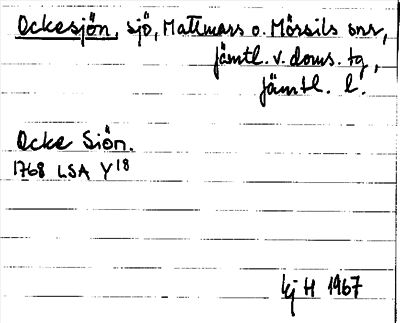 Ockesjön, sjö, Mattmars o. Mörsils snr,
Jämtl. v. doms. tg,
Jämtl. l.
Ocke Siön.
1768 LSA Y18
kj H 1967